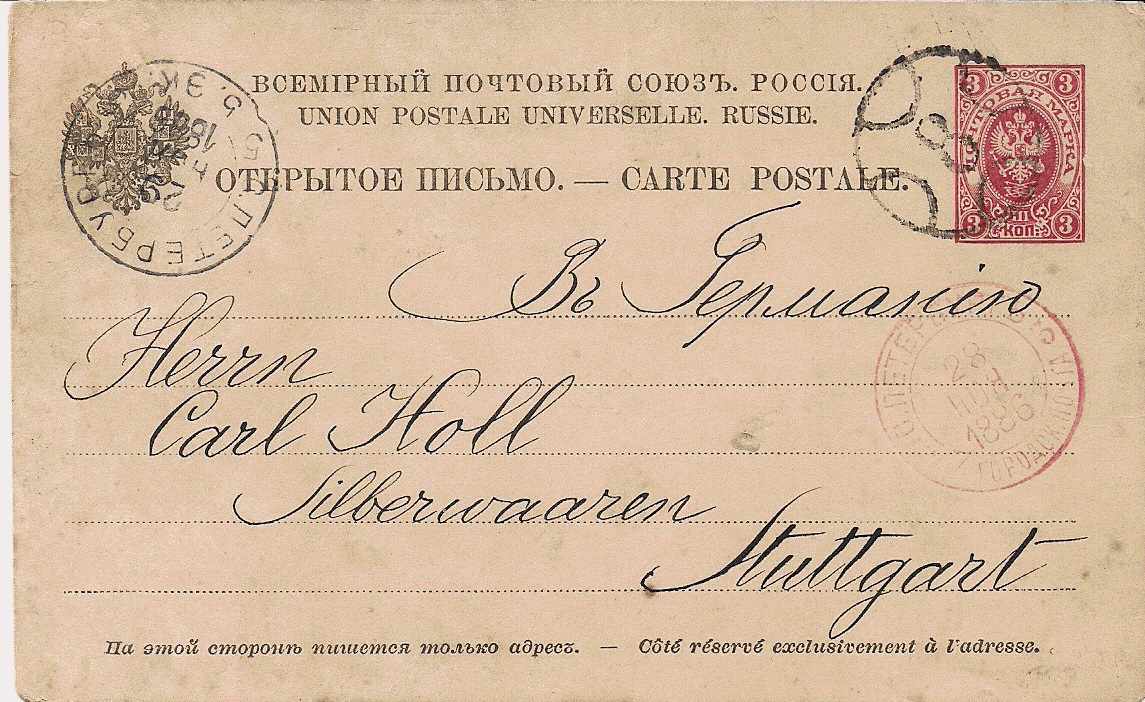 ВСЕМІРНЫЙ ПОЧТОВЫЙ СОЮЗЪ. РОССІЯ.
UNION POSTALE UNIVERSELLE. RUSSIE.
ОТКРЫТОЕ ПИСЬМО. — CARTE POSTALE.
3 3
ПОЧТОВАЯ МАРКА
3 КОП: 3
8
С.ПЕТЕРБУРГ
Въ Германію
Herrn
Carl Holl
Silberwaaren
Stuttgart
28
НОЯ
1886
ГОРОДСК. ПОЧТА
На этой сторонѣ пишется только адресъ. — Côté réservé exclusivement à l'adresse.